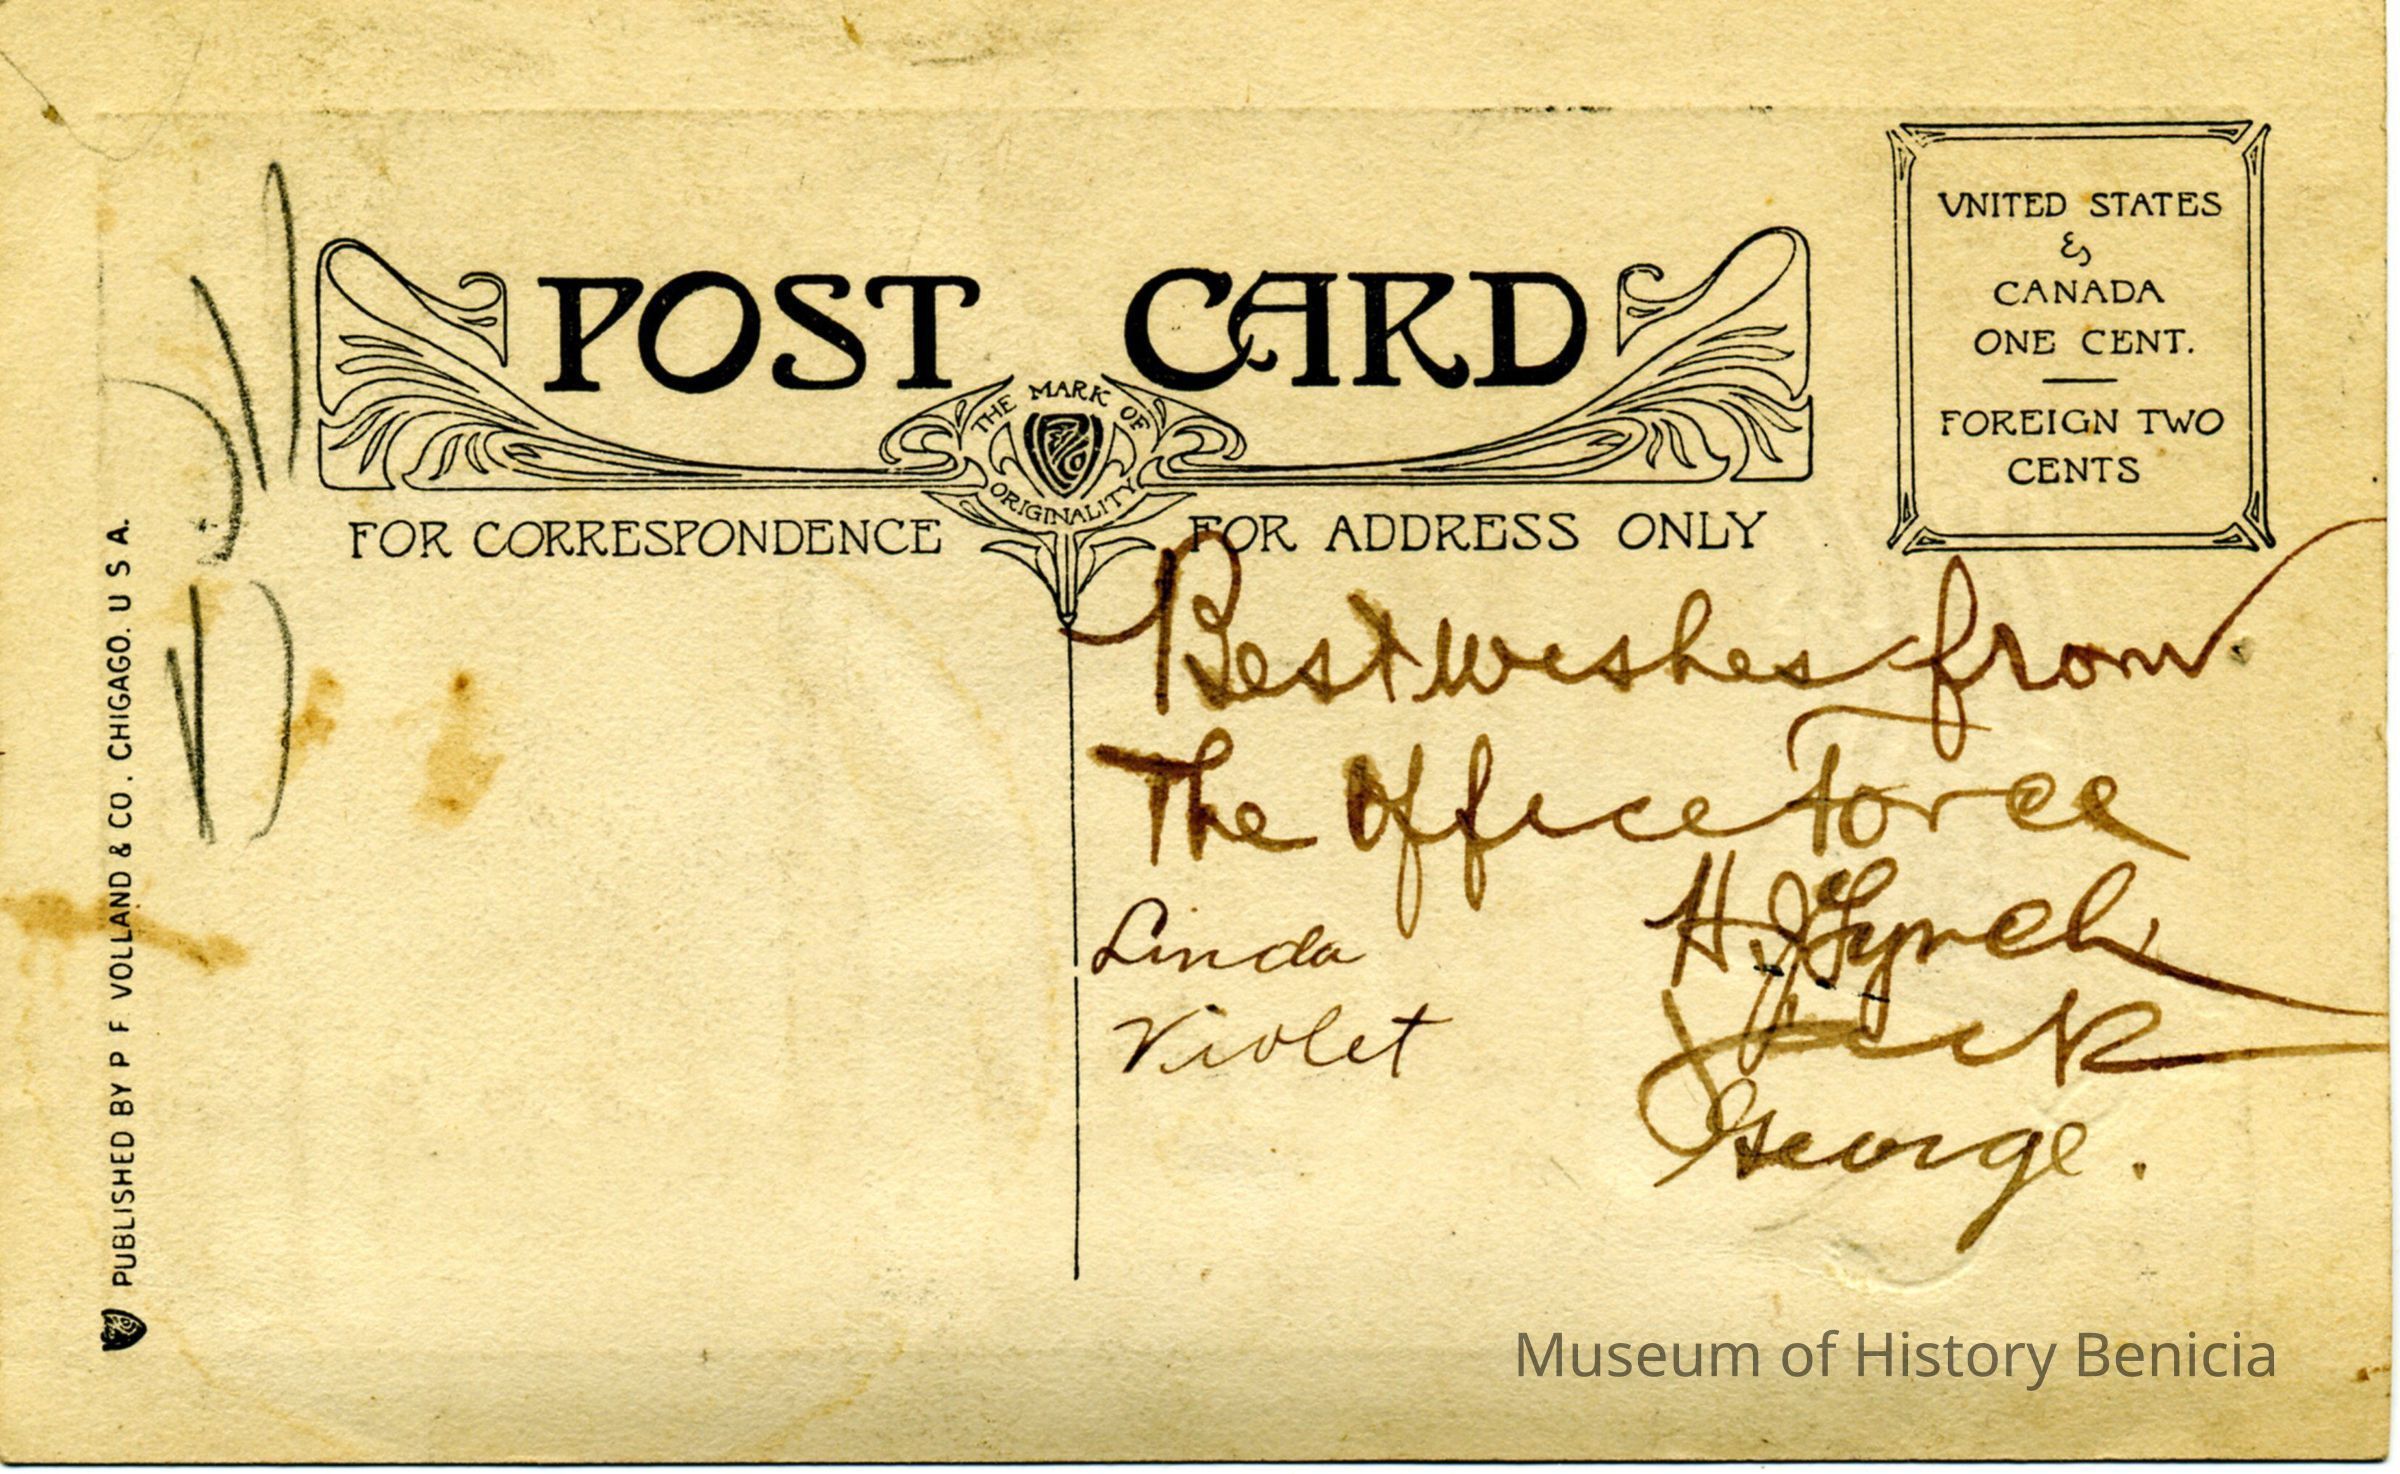 POST CARD
THE MARK OF
ORIGINALITY
FOR CORRESPONDENCE
FOR ADDRESS ONLY
VNITED STATES
&
CANADA
ONE CENT.
FOREIGN TWO
CENTS
PUBLISHED BY P F VOLLAND & CO. CHIGAGO. U S A.
Best wishes from
The Office Force
H. J. Lynch
Jack
George.
Linda
Violet
Museum of History Benicia